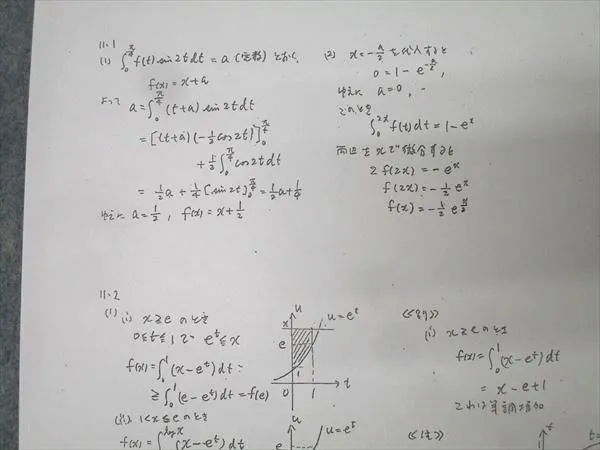 11.1
(1) ∫₀^{π/4} f(t) sin2t dt = a (定数) とおく,
f(x) = x + a
よって a = ∫₀^{π/4} (t+a) sin2t dt
= [(t+a)(-1/2 cos2t)]₀^{π/4}
+ 1/2 ∫₀^{π/4} cos2t dt
= 1/2 a + 1/4 [sin2t]₀^{π/4} = 1/2 a + 1/4
ゆえに a = 1/2, f(x) = x + 1/2
(2) x = -a/2 を代入すると
0 = 1 - e^{-a/2},
ゆえに a = 0,
このとき
∫₀^{2x} f(t)dt = 1 - e^x
両辺を x で微分すると
2f(2x) = -e^x
f(2x) = -1/2 e^x
f(x) = -1/2 e^{x/2}
11.2
(1) (i) x ≧ e のとき
0 ≦ t ≦ 1 で e^t ≦ x
f(x) = ∫₀¹ (x - e^t) dt
≧ ∫₀¹ (e - e^t) dt = f(e)
(ii) 1 < x ≦ e のとき
f(x) = ∫₀^{log x} (x - e^t) dt
u
u = e^t
x
e
1
0
1
t
u
u = e^t
e
(i) x ≧ e のとき
f(x) = ∫₀¹ (x - e^t) dt
= x - e + 1
これは単調増加
t
t =